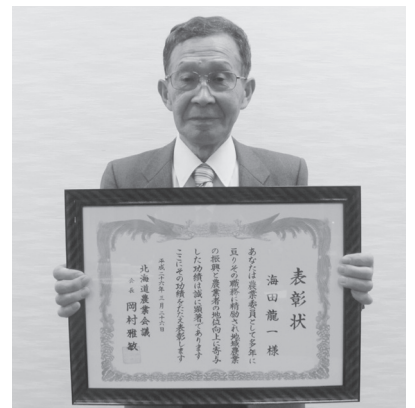 表彰状
海田龍一様
あなたは農業委員として多年に
亘りその職務に精励され地域農業
の振興と農業者の地位向上に寄与
した功績は誠に顕著であります
ここにその功績をたたえ表彰します
平成二十六年三月二十六日
北海道農業会議
会長 岡村雅敏